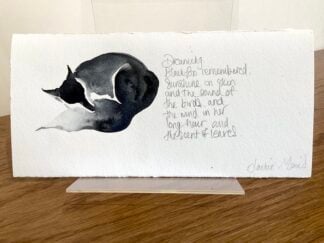 Dreaming,
Black Fox remembered
Sunshine on skin
and the sound of
the birds and
the wind in her
long hair and
the scent of leaves
Jackie Morris